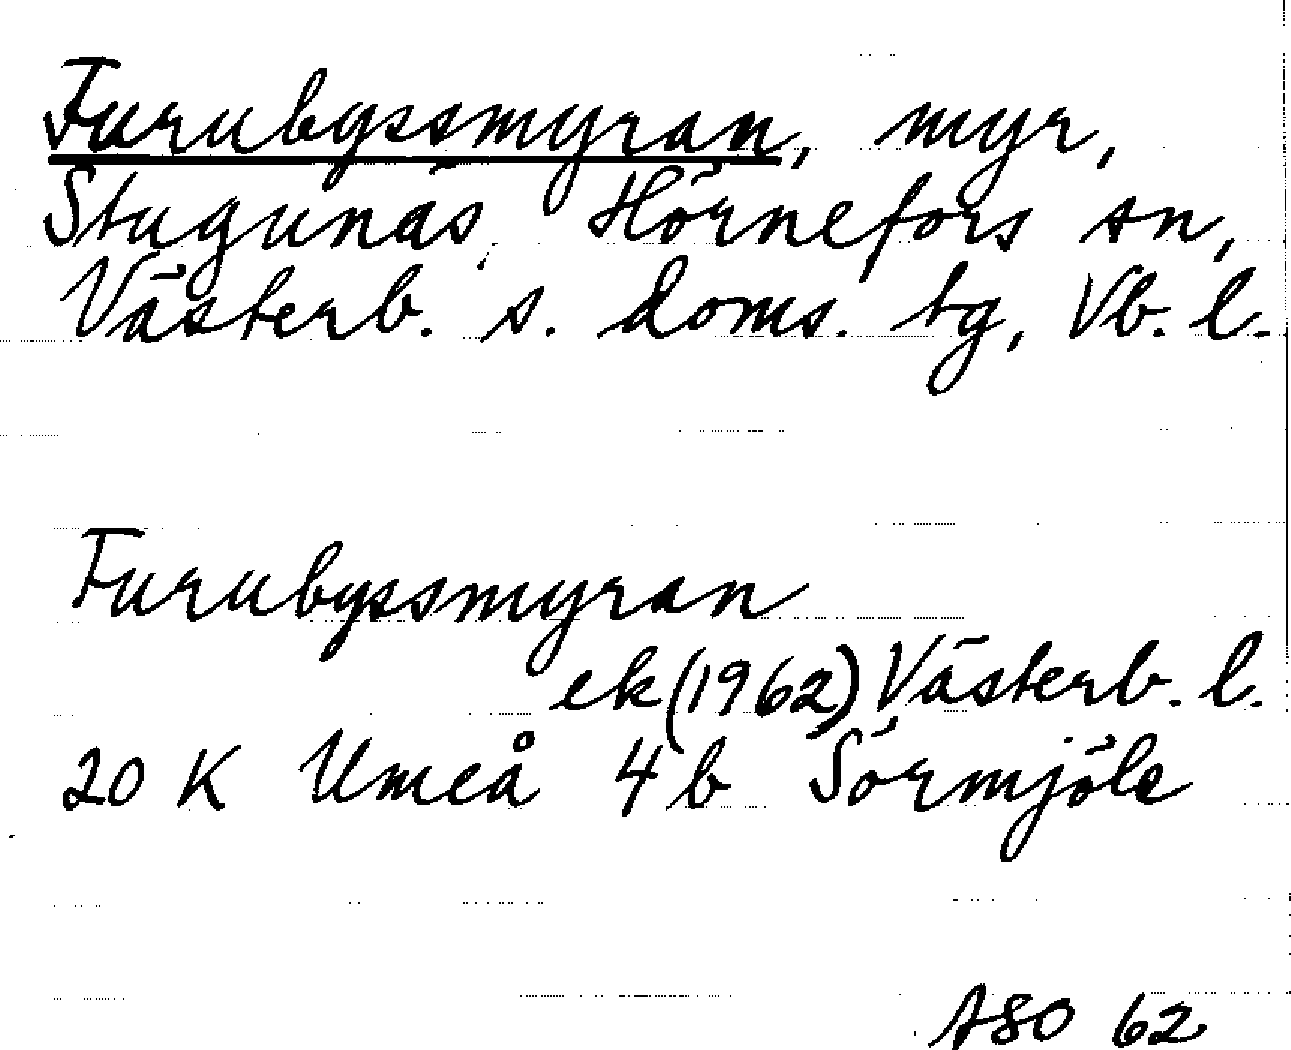 Furubyssmyran, myr,
Stugunäs, Hörnefors sn,
Västerb. s. doms. tg, Vb. l.
Furubyssmyran
ek (1962) Västerb. l.
20 K Umeå 4 b Sörmjöle
ASO 62